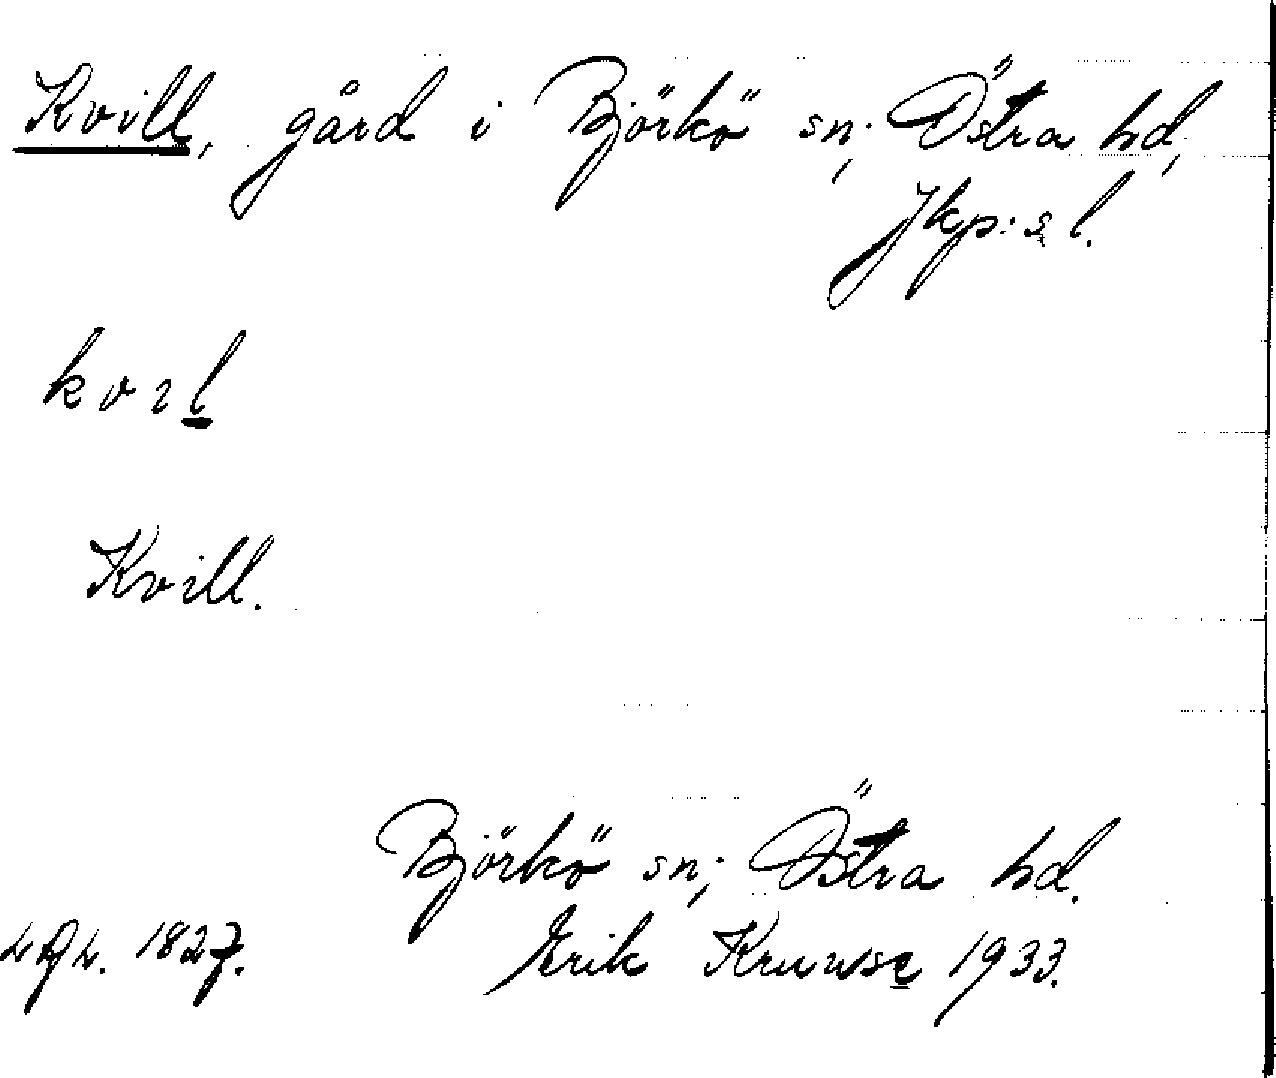 Kvill, gård i Björkö sn; Östra hd,
Jkp:s l.
kvıl
Kvill.
Björkö sn; Östra hd.
1827. Erik Kruuse 1933.